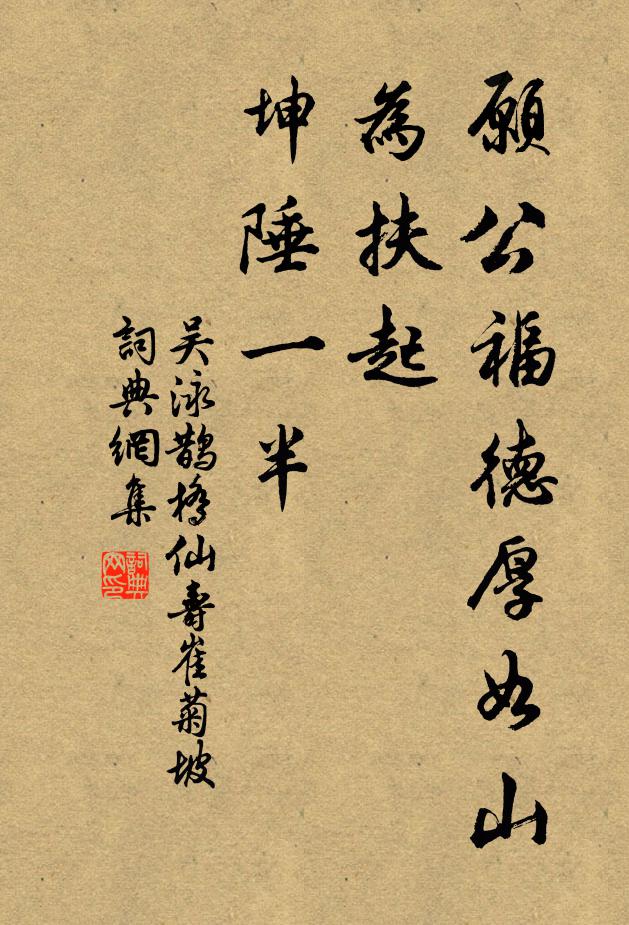 願公福德厚如山
為扶起
坤陲一半
吴泳鵲橋仙壽崔菊坡
詞典網集
詞典網印